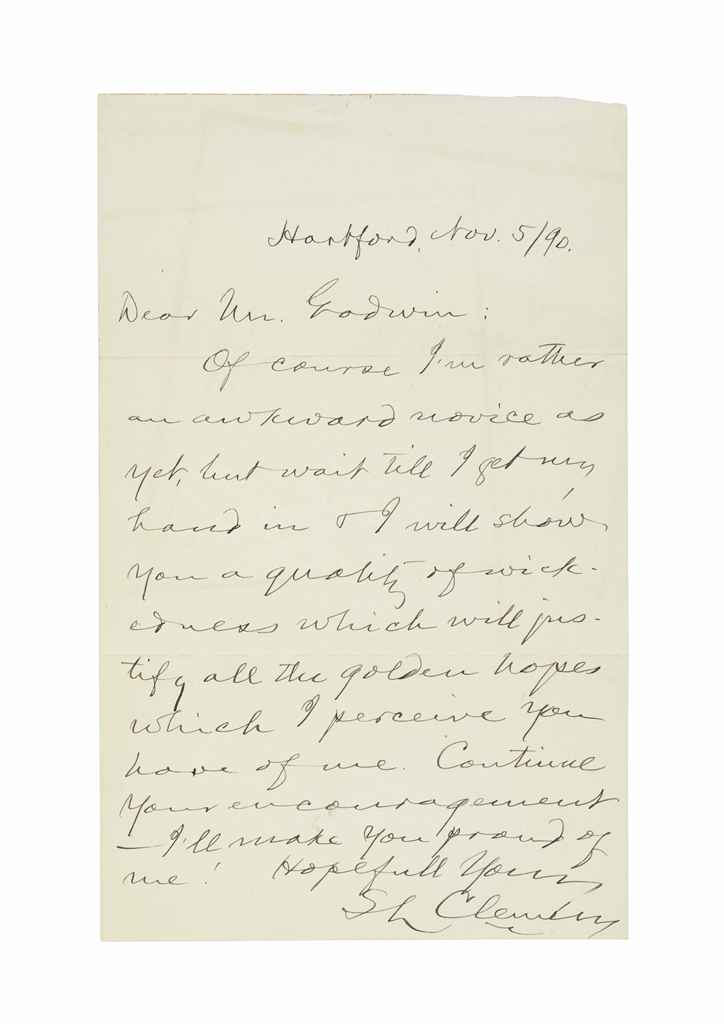 Hartford, Nov. 5/90.
Dear Mr. Godwin:
Of course I'm rather
an awkward novice as
yet, but wait till I get my
hand in & I will show
you a quality of wick-
edness which will jus-
tify all the golden hopes
which I perceive you
have of me. Continue
your encouragement
—I'll make you proud of
me! Hopefull Yours
SL Clemens